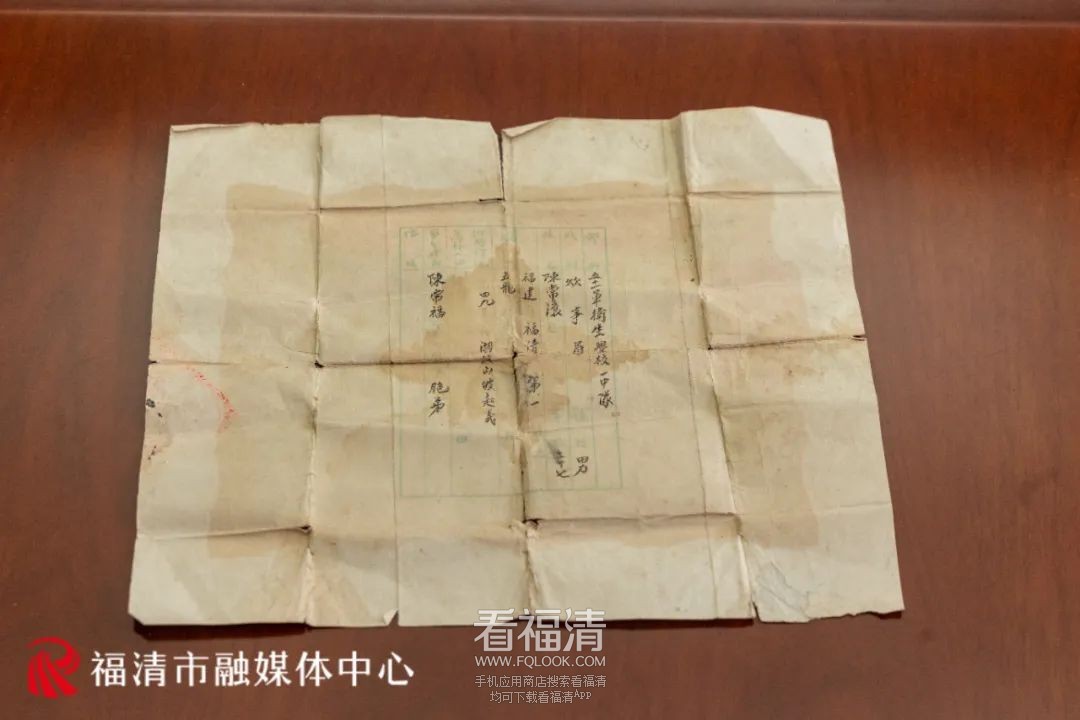 五一军衛生學校一中隊
炊事員 男
陳常濱 三十七
福建 福清 第一
五龍
四九 湖北山坡起義
陳常福 胞弟
福清市融媒体中心
看福清
WWW.FQLOOK.COM
手机应用商店搜索看福清
均可下载看福清App